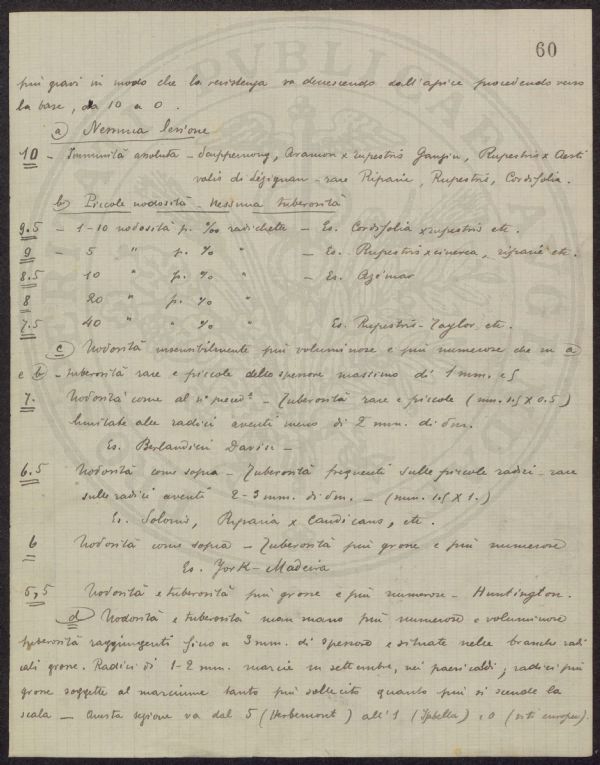 60
più gravi in modo che la resistenza va decrescendo dall'apice procedendo verso
la base, da 10 a 0.
a) Nessuna lesione
10 - Immunità assoluta - Scuppernong, Aramon x rupestris Ganzin, Rupestris x Aesti
valis di Lézignan - rare Riparie, Rupestris, Cordifolia.
b) Piccole nodosità - Nessuna tuberosità
9.5 - 1-10 nodosità p. ‰ radichette - Es. Cordifolia x rupestris etc.
9 - 5 " p. % " - Es. Rupestris x cinerea, riparie etc.
8.5 10 " p. % " - Es. Azémar
8 20 " p. % "
7.5 40 " " % " Es. Rupestris-Taylor etc.
c) Nodosità insensibilmente più voluminose e più numerose che in a)
e b) - tuberosità rare e piccole dello spessore massimo di 1 mm. e 5
7. Nodosità come al n° preced.te - Tuberosità rare e piccole (mm. 1.5 x 0.5)
limitate alle radici aventi meno di 2 mm. di dm.
Es. Berlandieri Davin -
6.5 Nodosità come sopra - Tuberosità frequenti sulle piccole radici - rare
sulle radici aventi 2-3 mm. di dm. - (mm. 1.5 X 1.)
Es. Solonis, Riparia x Candicans, etc.
6 Nodosità come sopra - Tuberosità più grosse e più numerose
Es. York-Madeira
5,5 Nodosità e tuberosità più grosse e più numerose - Huntington.
d) Nodosità e tuberosità man mano più numerose e voluminose
tuberosità raggiungenti fino a 3 mm. di spessore e situate nelle branche radi
cali grosse. Radici di 1-2 mm. marcie in settembre, nei paesi caldi, radici più
grosse soggette al marciume tanto più sollecito quanto più si scende la
scala - Questa sezione va dal 5 (Herbemont) all'1 (Isabella) e 0 (viti europee).